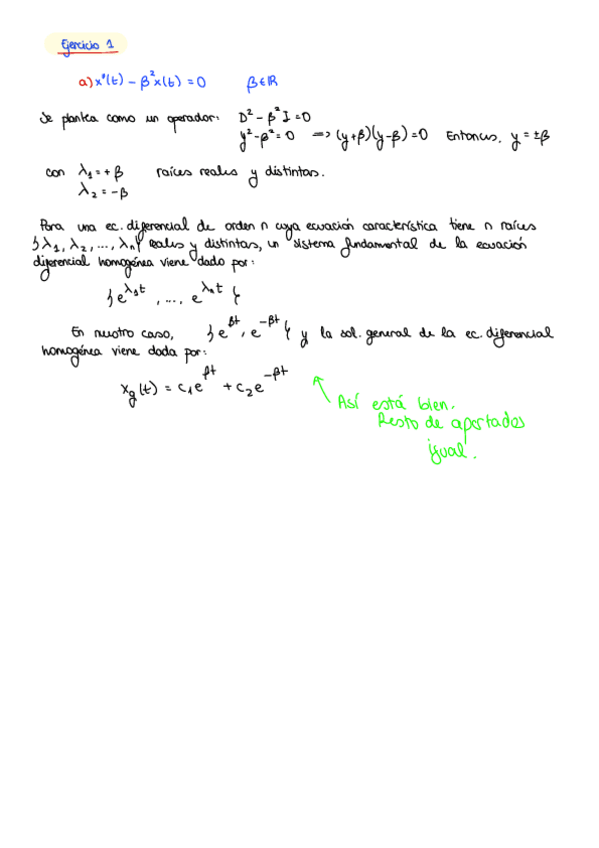 Ejercicio 1
a) x''(t) - β²x(t) = 0 β ∈ ℝ
Se plantea como un operador: D² - β² I = 0
y² - β² = 0 => (y+β)(y-β) = 0 Entonces, y = ±β
con λ₁ = +β raíces reales y distintas.
λ₂ = -β
Para una ec. diferencial de orden n cuya ecuación característica tiene n raíces
{λ₁, λ₂, ..., λₙ} reales y distintas, un sistema fundamental de la ecuación
diferencial homogénea viene dado por:
{e^{λ₁t}, ..., e^{λₙt}}
En nuestro caso, {e^{βt}, e^{-βt}} y la sol. general de la ec. diferencial
homogénea viene dada por:
x_g(t) = c₁e^{βt} + c₂e^{-βt}
Así está bien.
Resto de apartados
igual.